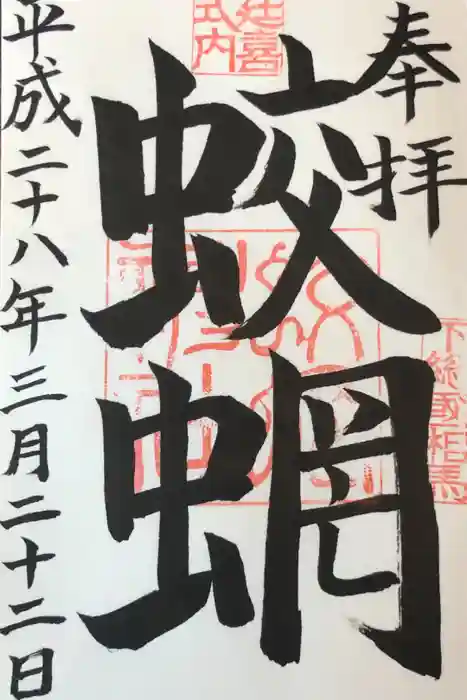 奉拝
下総國相馬
延喜
式内
蛟蝄
平成二十八年三月二十二日